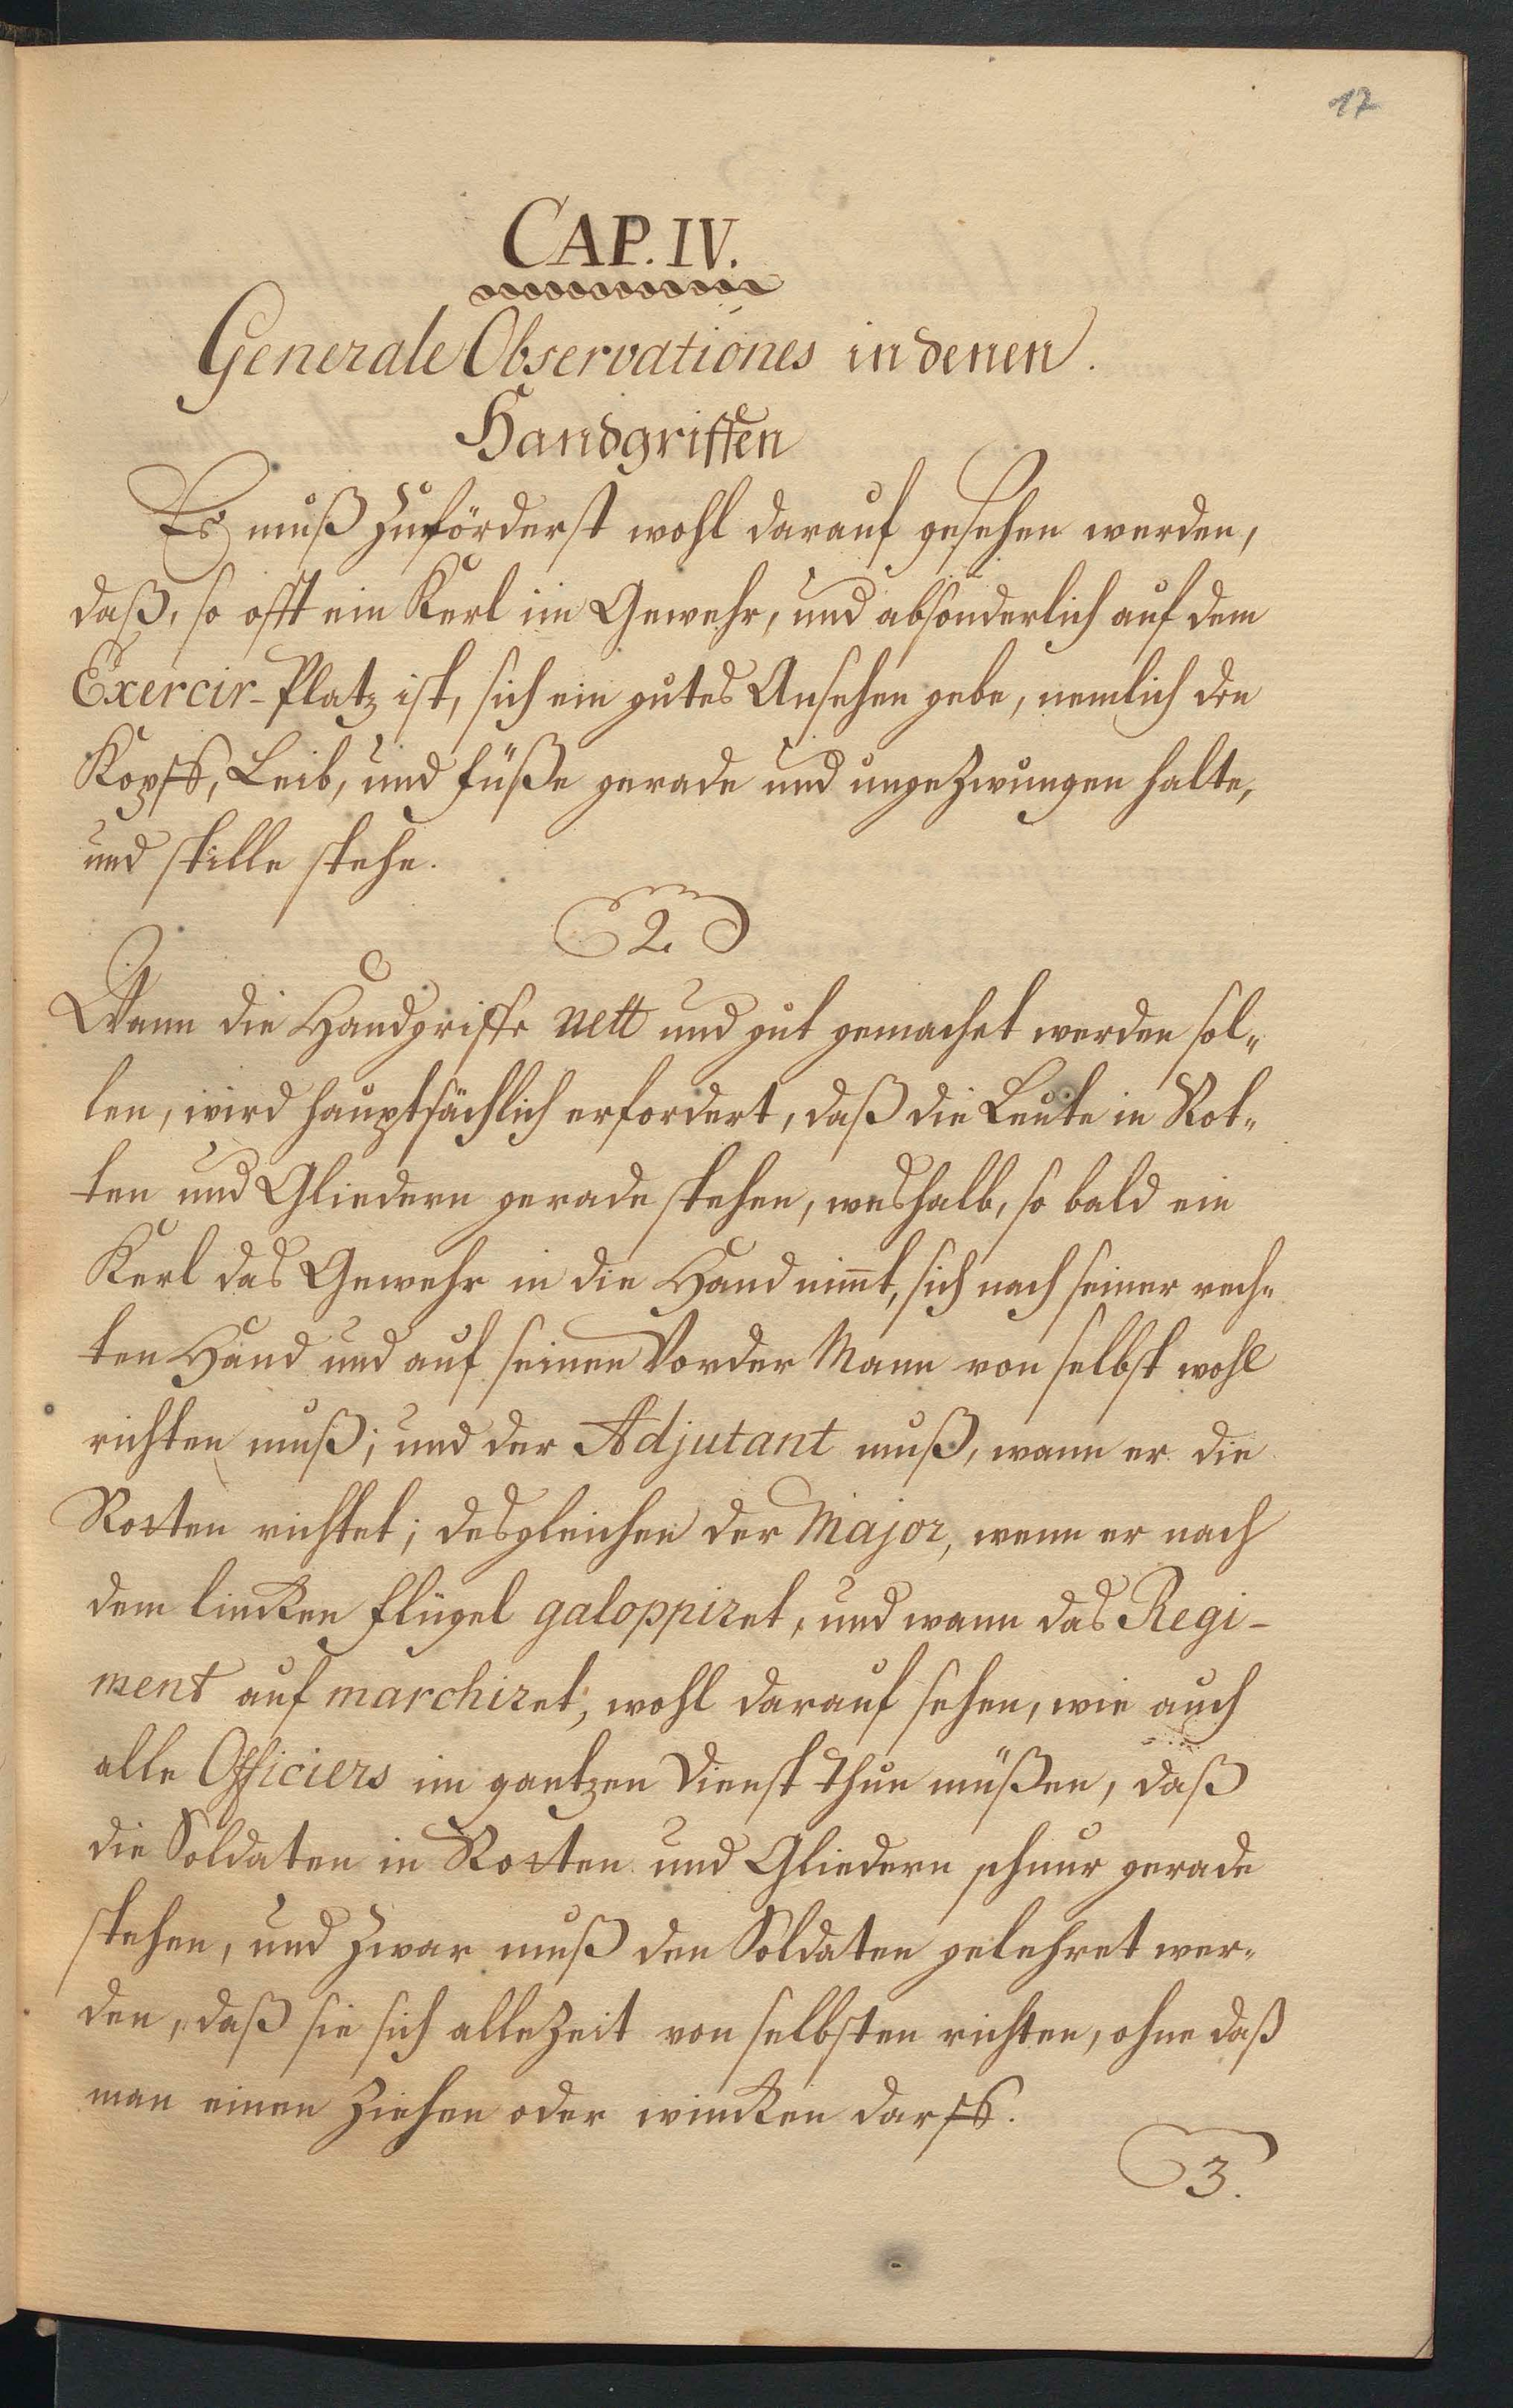 17
CAP. IV.
Generale Observationes in denen.
Handgriffen
Es muß zuförderst wohl darauf gesehen werden,
daß, so offt ein Kerl im Gewehr, und absonderlich auf dem
Exercir-Platz ist, sich ein gutes Ansehen gebe, nemlich den
Kopff, Leib, und Füße gerade und ungezwungen halte,
und stille stehe.
2.
Wann die Handgriffe nett und gut gemachet werden sol-
len, wird hauptsächlich erfordert, daß die Leute in Rot-
ten und Gliedern gerade stehen, weshalb, so bald ein
Kerl das Gewehr in die Hand nim̅t, sich nach seiner rech-
ten Hand und auf seinen Vorder Mann von selbst wohl
richten muß; und der Adjutant muß, wann er die
Rotten richtet; desgleichen der Major, wenn er nach
dem lincken Flügel galoppiret, und wann das Regi-
ment auf marchiret, wohl darauf sehen, wie auch
alle Officiers im gantzen Dienst thun müßen, daß
die Soldaten in Rotten und Gliedern schnur gerade
stehen, und zwar muß den Soldaten gelehret wer-
den, daß sie sich allezeit von selbsten richten, ohne daß
man einen ziehen oder wincken darff.
3.